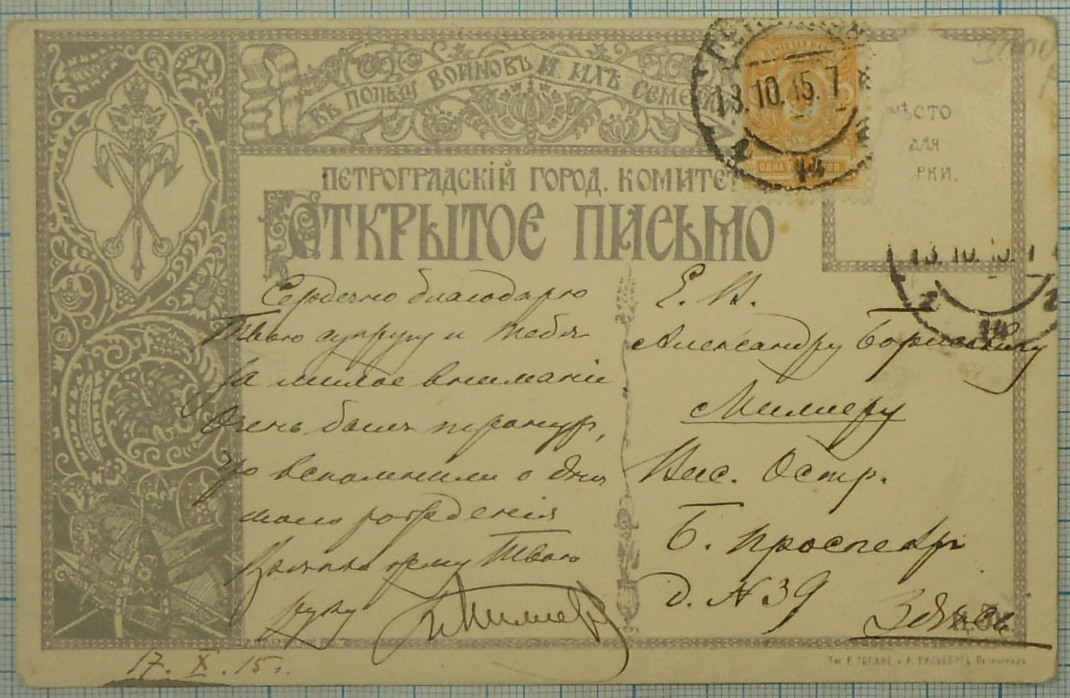 ВЪ ПОЛЬЗУ ВОИНОВЪ И ИХЪ СЕМЕЙ
ПЕТРОГРАДСКІЙ ГОРОД. КОМИТЕТ
ОТКРЫТОЕ ПИСЬМО
13.10.15.7
14
ОДНА
МѢСТО
ДЛЯ
РКИ.
13.10.15.
14
Сердечно благодарю
Твою супругу и тебя
за милое вниманіе
Очень былъ тронутъ,
что вспомнили о дне
моего рожденія
Крѣпко жму Твою
руку
17. X. 15 г.
Е. В.
Александру Борисовичу
Миллеру
Вас. Остр.
Б. проспектъ
д. N 39
Здѣсь